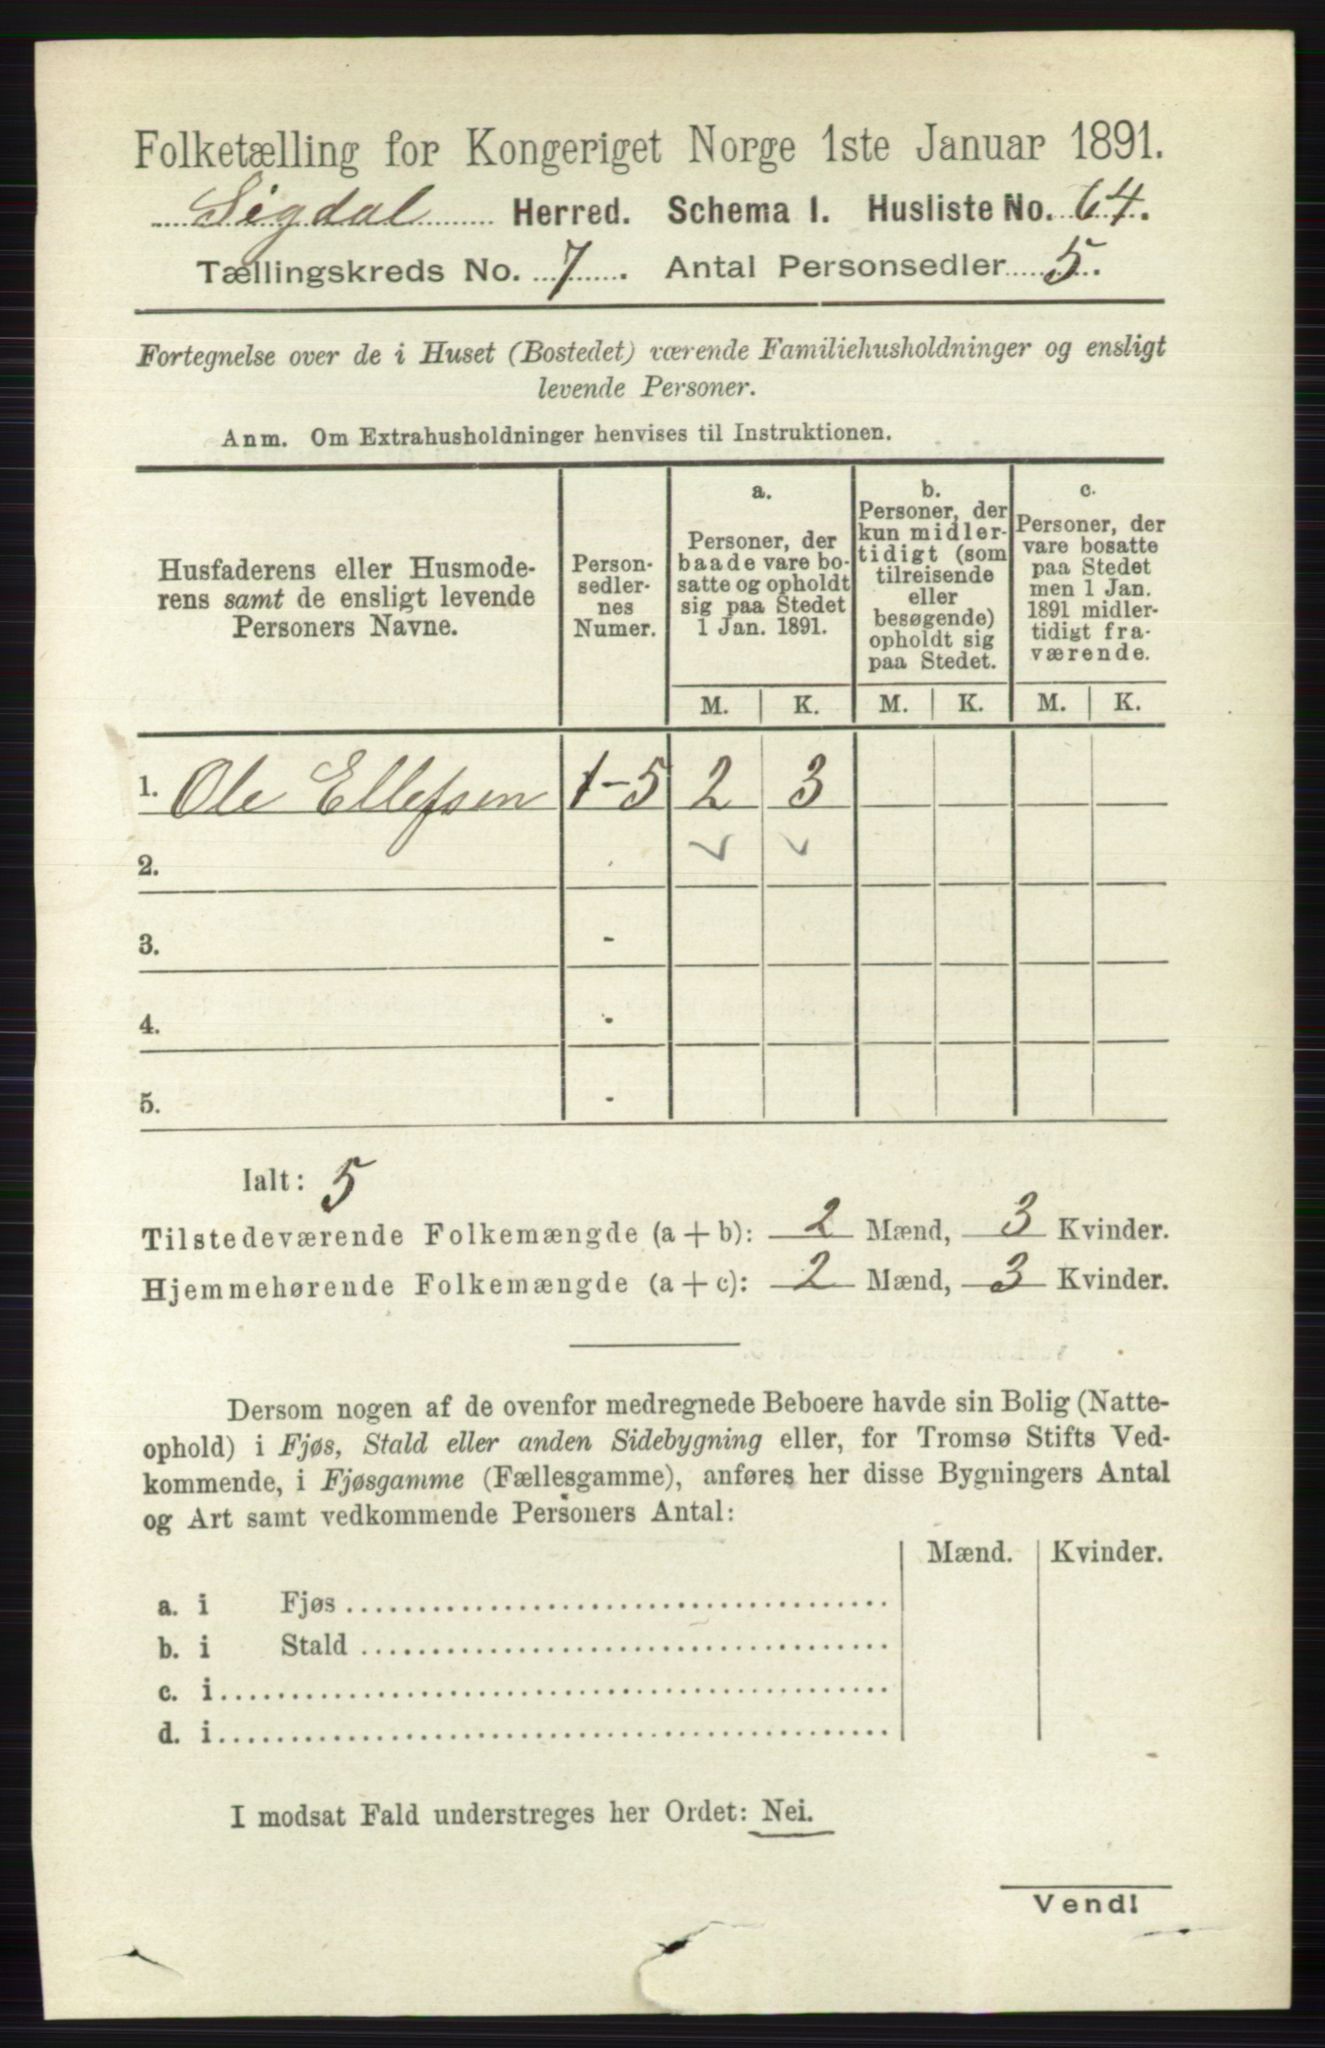 Folketælling for Kongeriget Norge 1ste Januar 1891.
Sigdal Herred. Schema I. Husliste No. 64.
Tællingskreds No. 7. Antal Personsedler 5.
Fortegnelse over de i Huset (Bostedet) værende Familiehusholdninger og ensligt
levende Personer.
Anm. Om Extrahusholdninger henvises til Instruktionen.
Husfaderens eller Husmode-
rens samt de ensligt levende
Personers Navne.
Person-
sedler-
nes
Numer.
a.
Personer, der
baade vare bo-
satte og opholdt
sig paa Stedet
1 Jan. 1891.
b.
Personer, der
kun midler-
tidigt (som
tilreisende
eller
besøgende)
opholdt sig
paa Stedet.
c.
Personer, der
vare bosatte
paa Stedet
men 1 Jan.
1891 midler-
tidigt fra-
værende.
M. K. M. K. M. K.
1. Ole Ellefsen 1-5 2 3
2.
3. -
4. -
5. -
Ialt: 5
Tilstedeværende Folkemængde (a + b): 2 Mænd, 3 Kvinder.
Hjemmehørende Folkemængde (a + c): 2 Mænd, 3 Kvinder.
Dersom nogen af de ovenfor medregnede Beboere havde sin Bolig (Natte-
ophold) i Fjøs, Stald eller anden Sidebygning eller, for Tromsø Stifts Ved-
kommende, i Fjøsgamme (Fællesgamme), anføres her disse Bygningers Antal
og Art samt vedkommende Personers Antal:
Mænd. Kvinder.
a. i Fjøs
b. i Stald
c. i
d. i
I modsat Fald understreges her Ordet: Nei.
Vend!